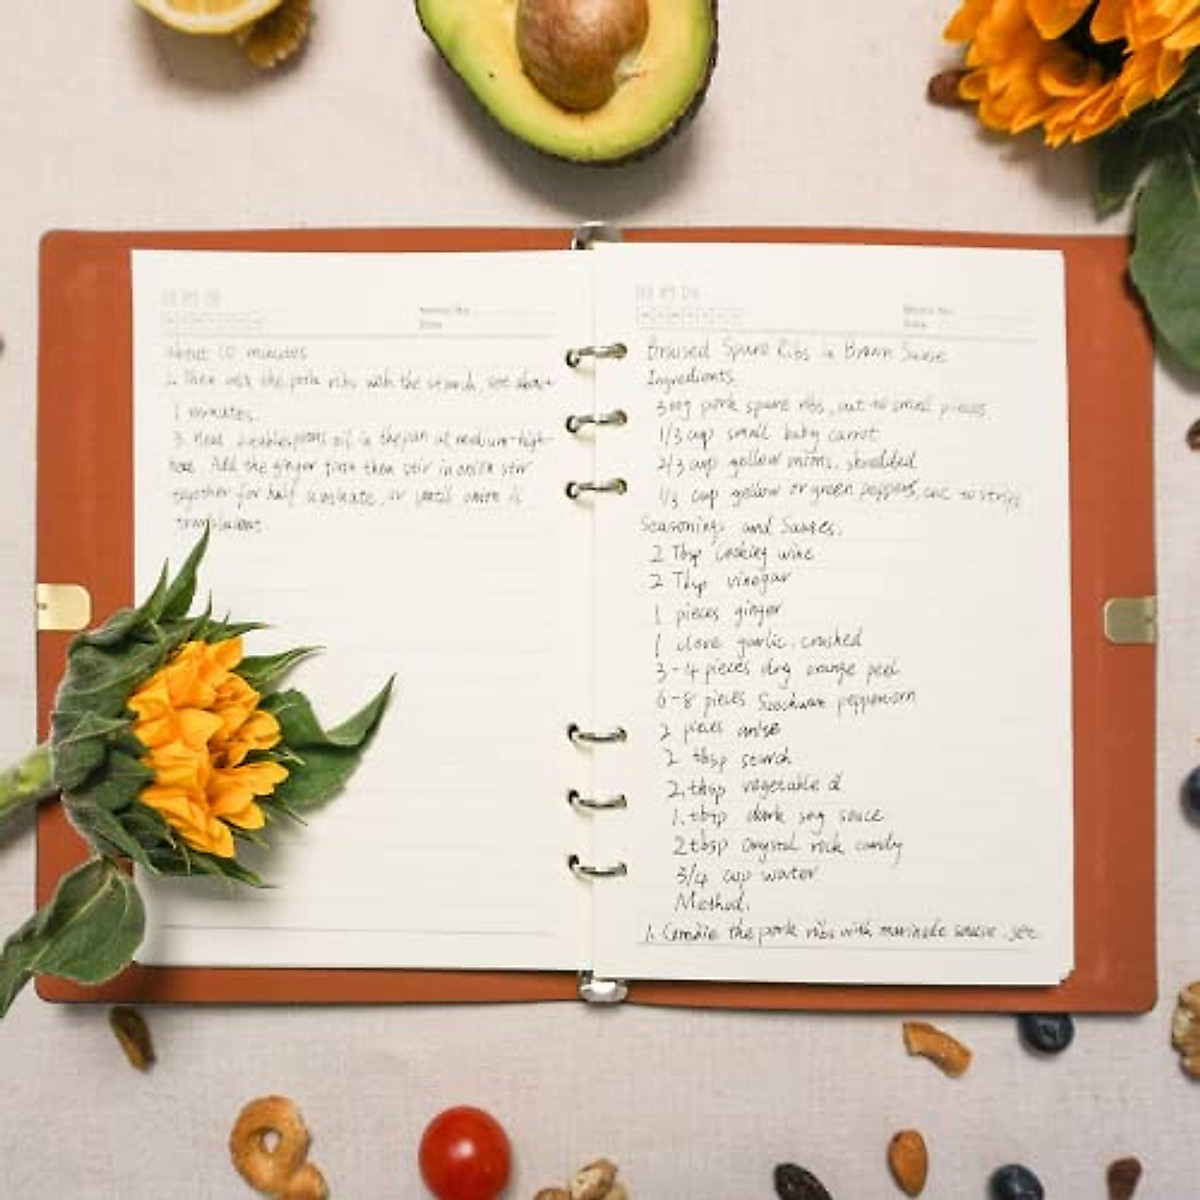 about 10 minutes
2. Then mix the pork ribs with the starch, set about
1 minutes.
3. Heat 2 tablespoons oil in the pan at medium-high-
heat. Add the ginger first then stir in onion stir
together for half a minute, or until onion is
translucent
Braised Spare Ribs in Brown Sauce
Ingredients
300g pork spare ribs, cut to small pieces.
1/3 cup small baby carrot
2/3 cup yellow onions, shredded
1/3 cup yellow or green peppers, cut to strips
Seasonings and Sauces.
2 Tbsp cooking wine
2 Tbsp vinegar
1 pieces ginger
1 clove garlic, crushed
3-4 pieces dry orange peel
6-8 pieces Szechwan peppercorn
2 pieces anise
2 tbsp starch
2 tbsp vegetable oil
1 tbsp dark soy sauce
2 tbsp crystal rock candy
3/4 cup water
Method.
1. Combine the pork ribs with marinade sauce. set